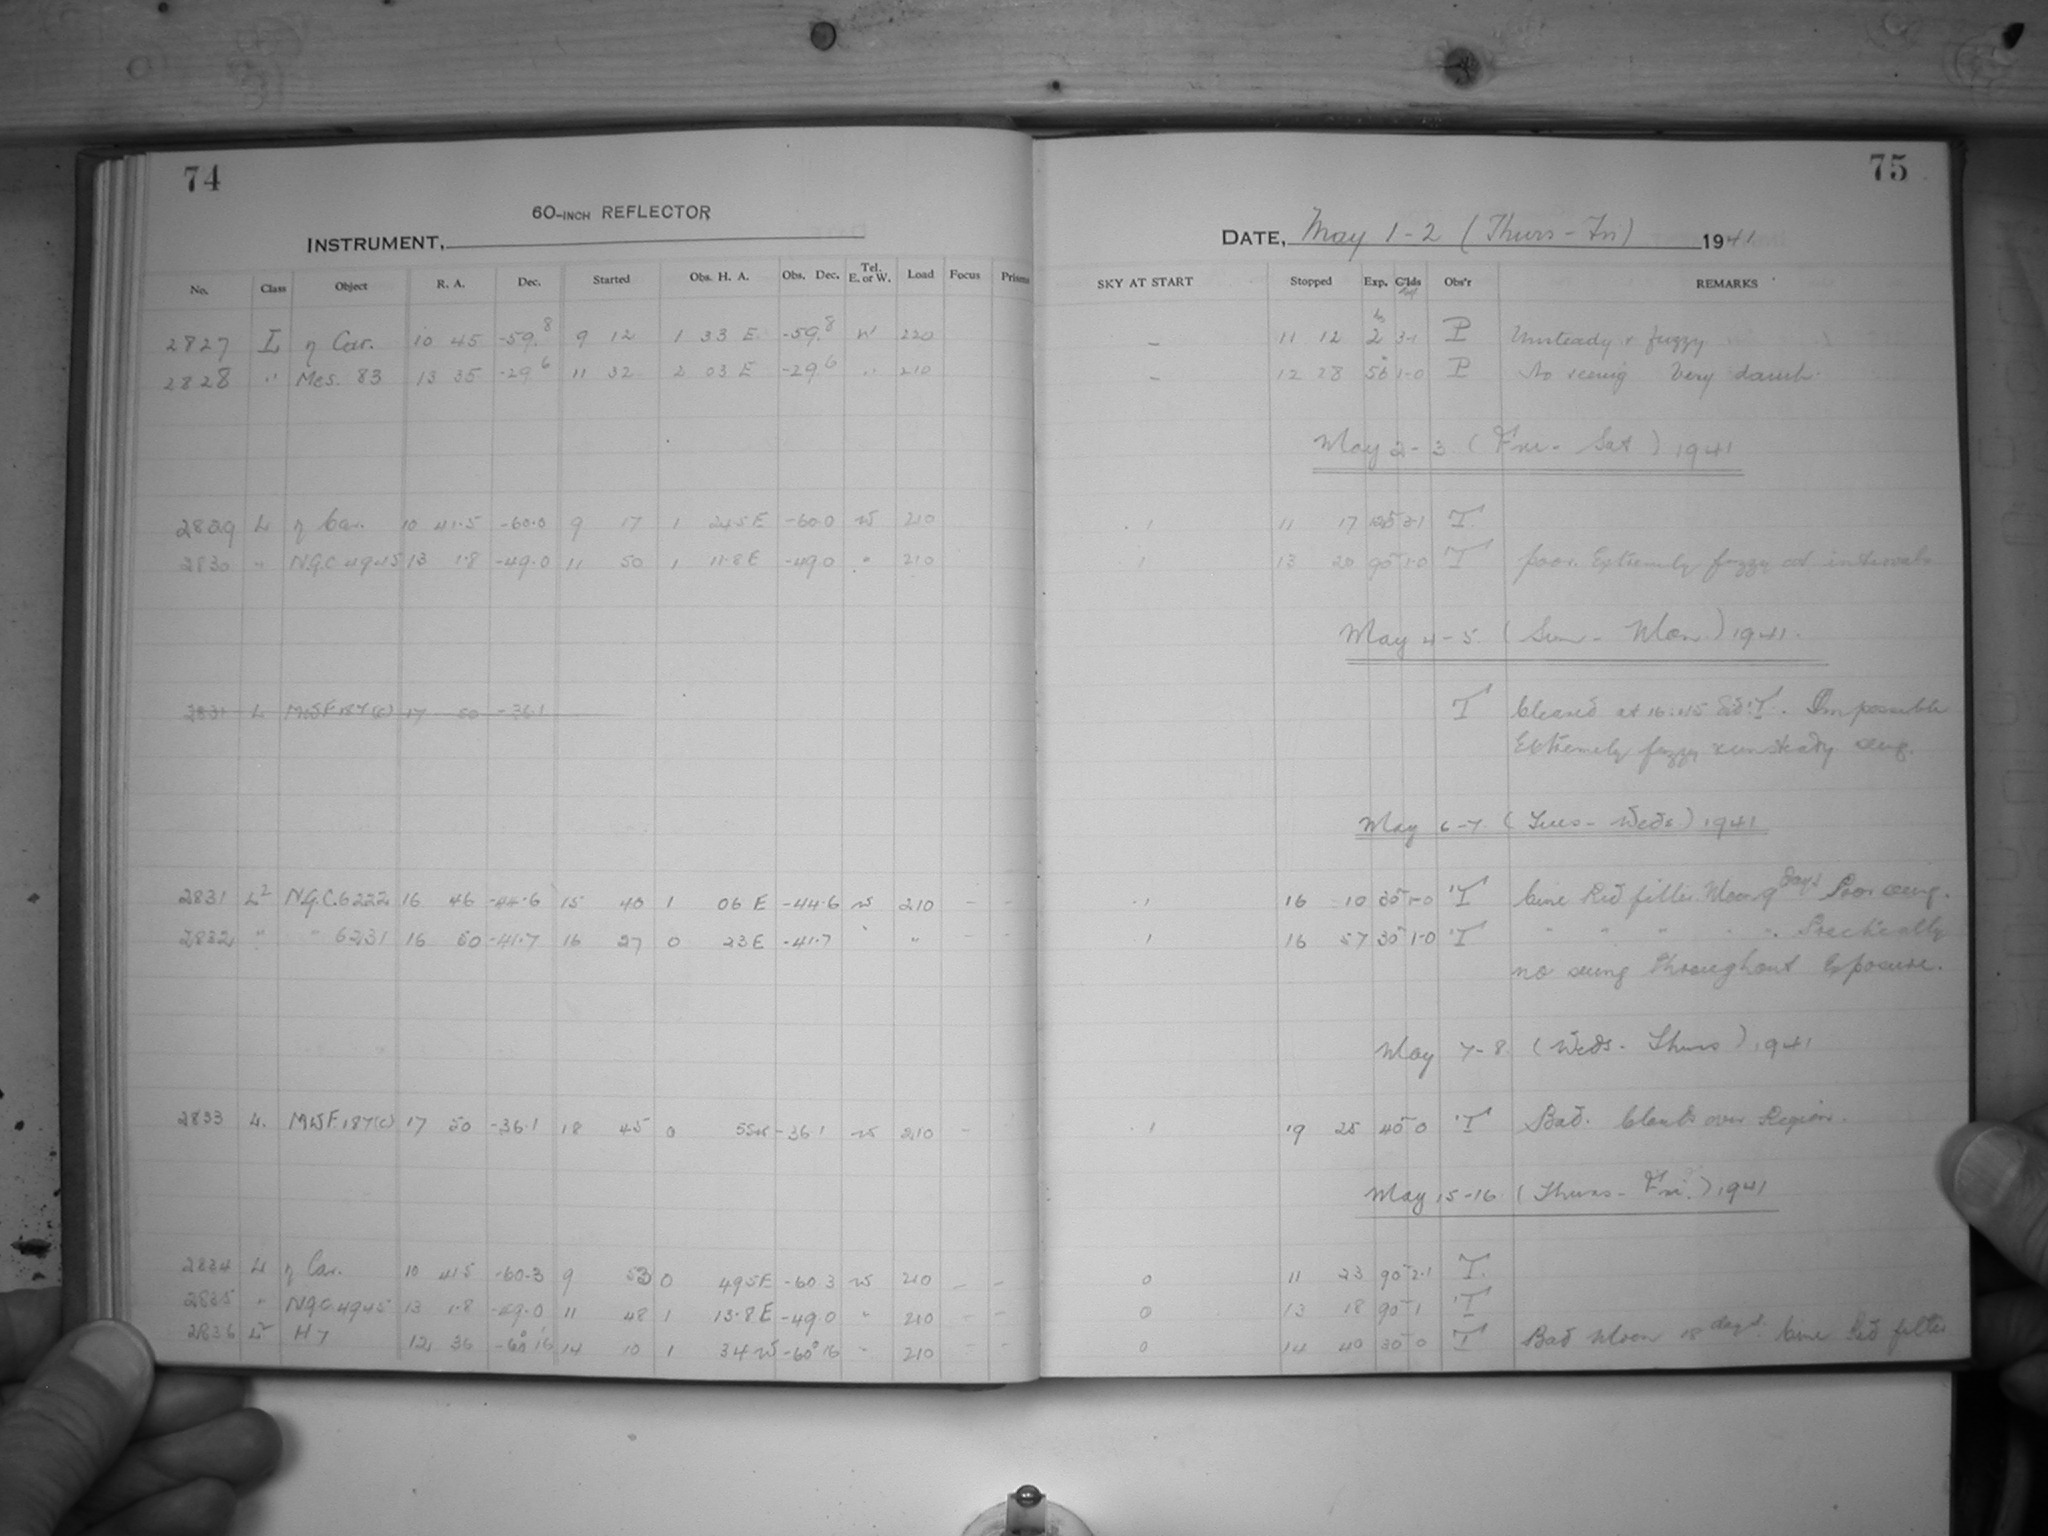 74
60-INCH REFLECTOR
INSTRUMENT,
No. Class Object R. A. Dec. Started Obs. H. A. Obs. Dec. Tel. E. or W. Load Focus Prisms
2827 L η Car. 10 45 -59.8 9 12 1 33 E -59.8 W 220
2828 " Mes. 83 13 35 -29.6 11 32 2 03 E -29.6 " 210
2829 L η Car. 10 41.5 -60.0 9 17 1 24.5 E -60.0 W 210
2830 " N.G.C. 4945 13 1.8 -49.0 11 50 1 11.8 E -49.0 " 210
2831 L MWF 187(c) 17 50 -36.1
2831 L2 N.G.C. 6222 16 46 -44.6 15 40 1 06 E -44.6 W 210 - -
2832 " " 6231 16 50 -41.7 16 27 0 23 E -41.7 " " - -
2833 L. MWF 187(c) 17 50 -36.1 18 45 0 -36.1 W 210 -
2834 L η Car. 10 41.5 -60.3 9 53 0 49.5 E -60.3 W 210 - -
2835 " N.G.C. 4945 13 1.8 -49.0 11 48 1 13.8 E -49.0 " 210 - -
2836 L2 H 7 12 36 -60° 16 14 10 1 34 W -60° 16 " 210 - -
75
DATE, May 1-2 (Thurs-Fri) 1941
SKY AT START Stopped Exp. G'lds Obs'r REMARKS
- 11 12 2h 3-1 P Unsteady & fuzzy
- 12 28 56 1-0 P No seeing Very damp.
May 2-3 (Fri- Sat) 1941
.1 11 17 T.
.1 13 20 90 1-0 T poor. Extremely fuzzy at intervals
May 4-5 (Sun - Mon.) 1941.
T Cleared at 16.45 Sid. T. Impossible
Extremely fuzzy & unsteady seeing.
May 6-7 (Tues- Weds) 1941
.1 16 10 30 1-0 T Cine Red filter. Moon 9 days Poor seeing.
.1 16 57 30 1-0 T " " " " " Practically
no seeing throughout Exposure.
May 7-8 (Weds- Thurs) 1941
.1 19 25 40 0 T Bad. Clouds over Region.
May 15-16 (Thurs- Fri.) 1941
0 11 23 90 2-1 T.
0 13 18 90 1 T
0 14 40 30 0 T Bad Moon 18 days. Cine Red filter